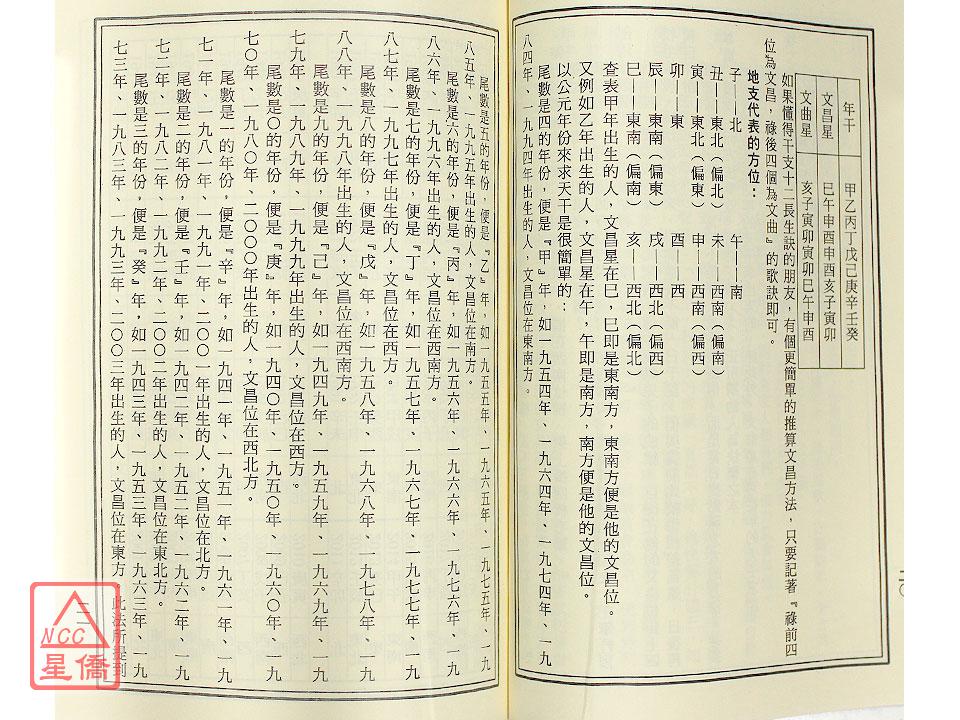 年干　甲乙丙丁戊己庚辛壬癸
文昌星　巳午申酉申酉亥子寅卯
文曲星　亥子寅卯寅卯巳午申酉
如果懂得干支十二長生訣的朋友，有個更簡單的推算文昌方法，只要記著『祿前四
位為文昌，祿後四個為文曲』的歌訣即可。
地支代表的方位：
子——北　午——南
丑——東北（偏北）　未——西南（偏南）
寅——東北（偏東）　申——西南（偏西）
卯——東　酉——西
辰——東南（偏東）　戌——西北（偏西）
巳——東南（偏南）　亥——西北（偏北）
查表甲年出生的人，文昌星在巳，巳即是東南方，東南方便是他的文昌位。
又例如乙年出生的人，文昌星在午，午即是南方，南方便是他的文昌位。
以公元年份來求天干是很簡單的：
尾數是四的年份，便是『甲』年，如一九五四年、一九六四年、一九七四年、一九
八四年、一九九四年出生的人，文昌位在東南方。
尾數是五的年份，便是『乙』年，如一九五五年、一九六五年、一九七五年、一九
八五年、一九九五年出生的人，文昌位在南方。
尾數是六的年份，便是『丙』年，如一九五六年、一九六六年、一九七六年、一九
八六年、一九九六年出生的人，文昌位在西南方。
尾數是七的年份，便是『丁』年，如一九五七年、一九六七年、一九七七年、一九
八七年、一九九七年出生的人，文昌位在西方。
尾數是八的年份，便是『戊』年，如一九五八年、一九六八年、一九七八年、一九
八八年、一九九八年出生的人，文昌位在西南方。
尾數是九的年份，便是『己』年，如一九四九年、一九五九年、一九六九年、一九
七九年、一九八九年、一九九九年出生的人，文昌位在西方。
尾數是〇的年份，便是『庚』年，如一九四〇年、一九五〇年、一九六〇年、一九
七〇年、一九八〇年、二〇〇〇年出生的人，文昌位在西北方。
尾數是一的年份，便是『辛』年，如一九四一年、一九五一年、一九六一年、一九
七一年、一九八一年、一九九一年、二〇〇一年出生的人，文昌位在北方。
尾數是二的年份，便是『壬』年，如一九四二年、一九五二年、一九六二年、一九
七二年、一九八二年、一九九二年、二〇〇二年出生的人，文昌位在東北方。
尾數是三的年份，便是『癸』年，如一九四三年、一九五三年、一九六三年、一九
七三年、一九八三年、一九九三年、二〇〇三年出生的人，文昌位在東方。此法所提到
NCC
星僑